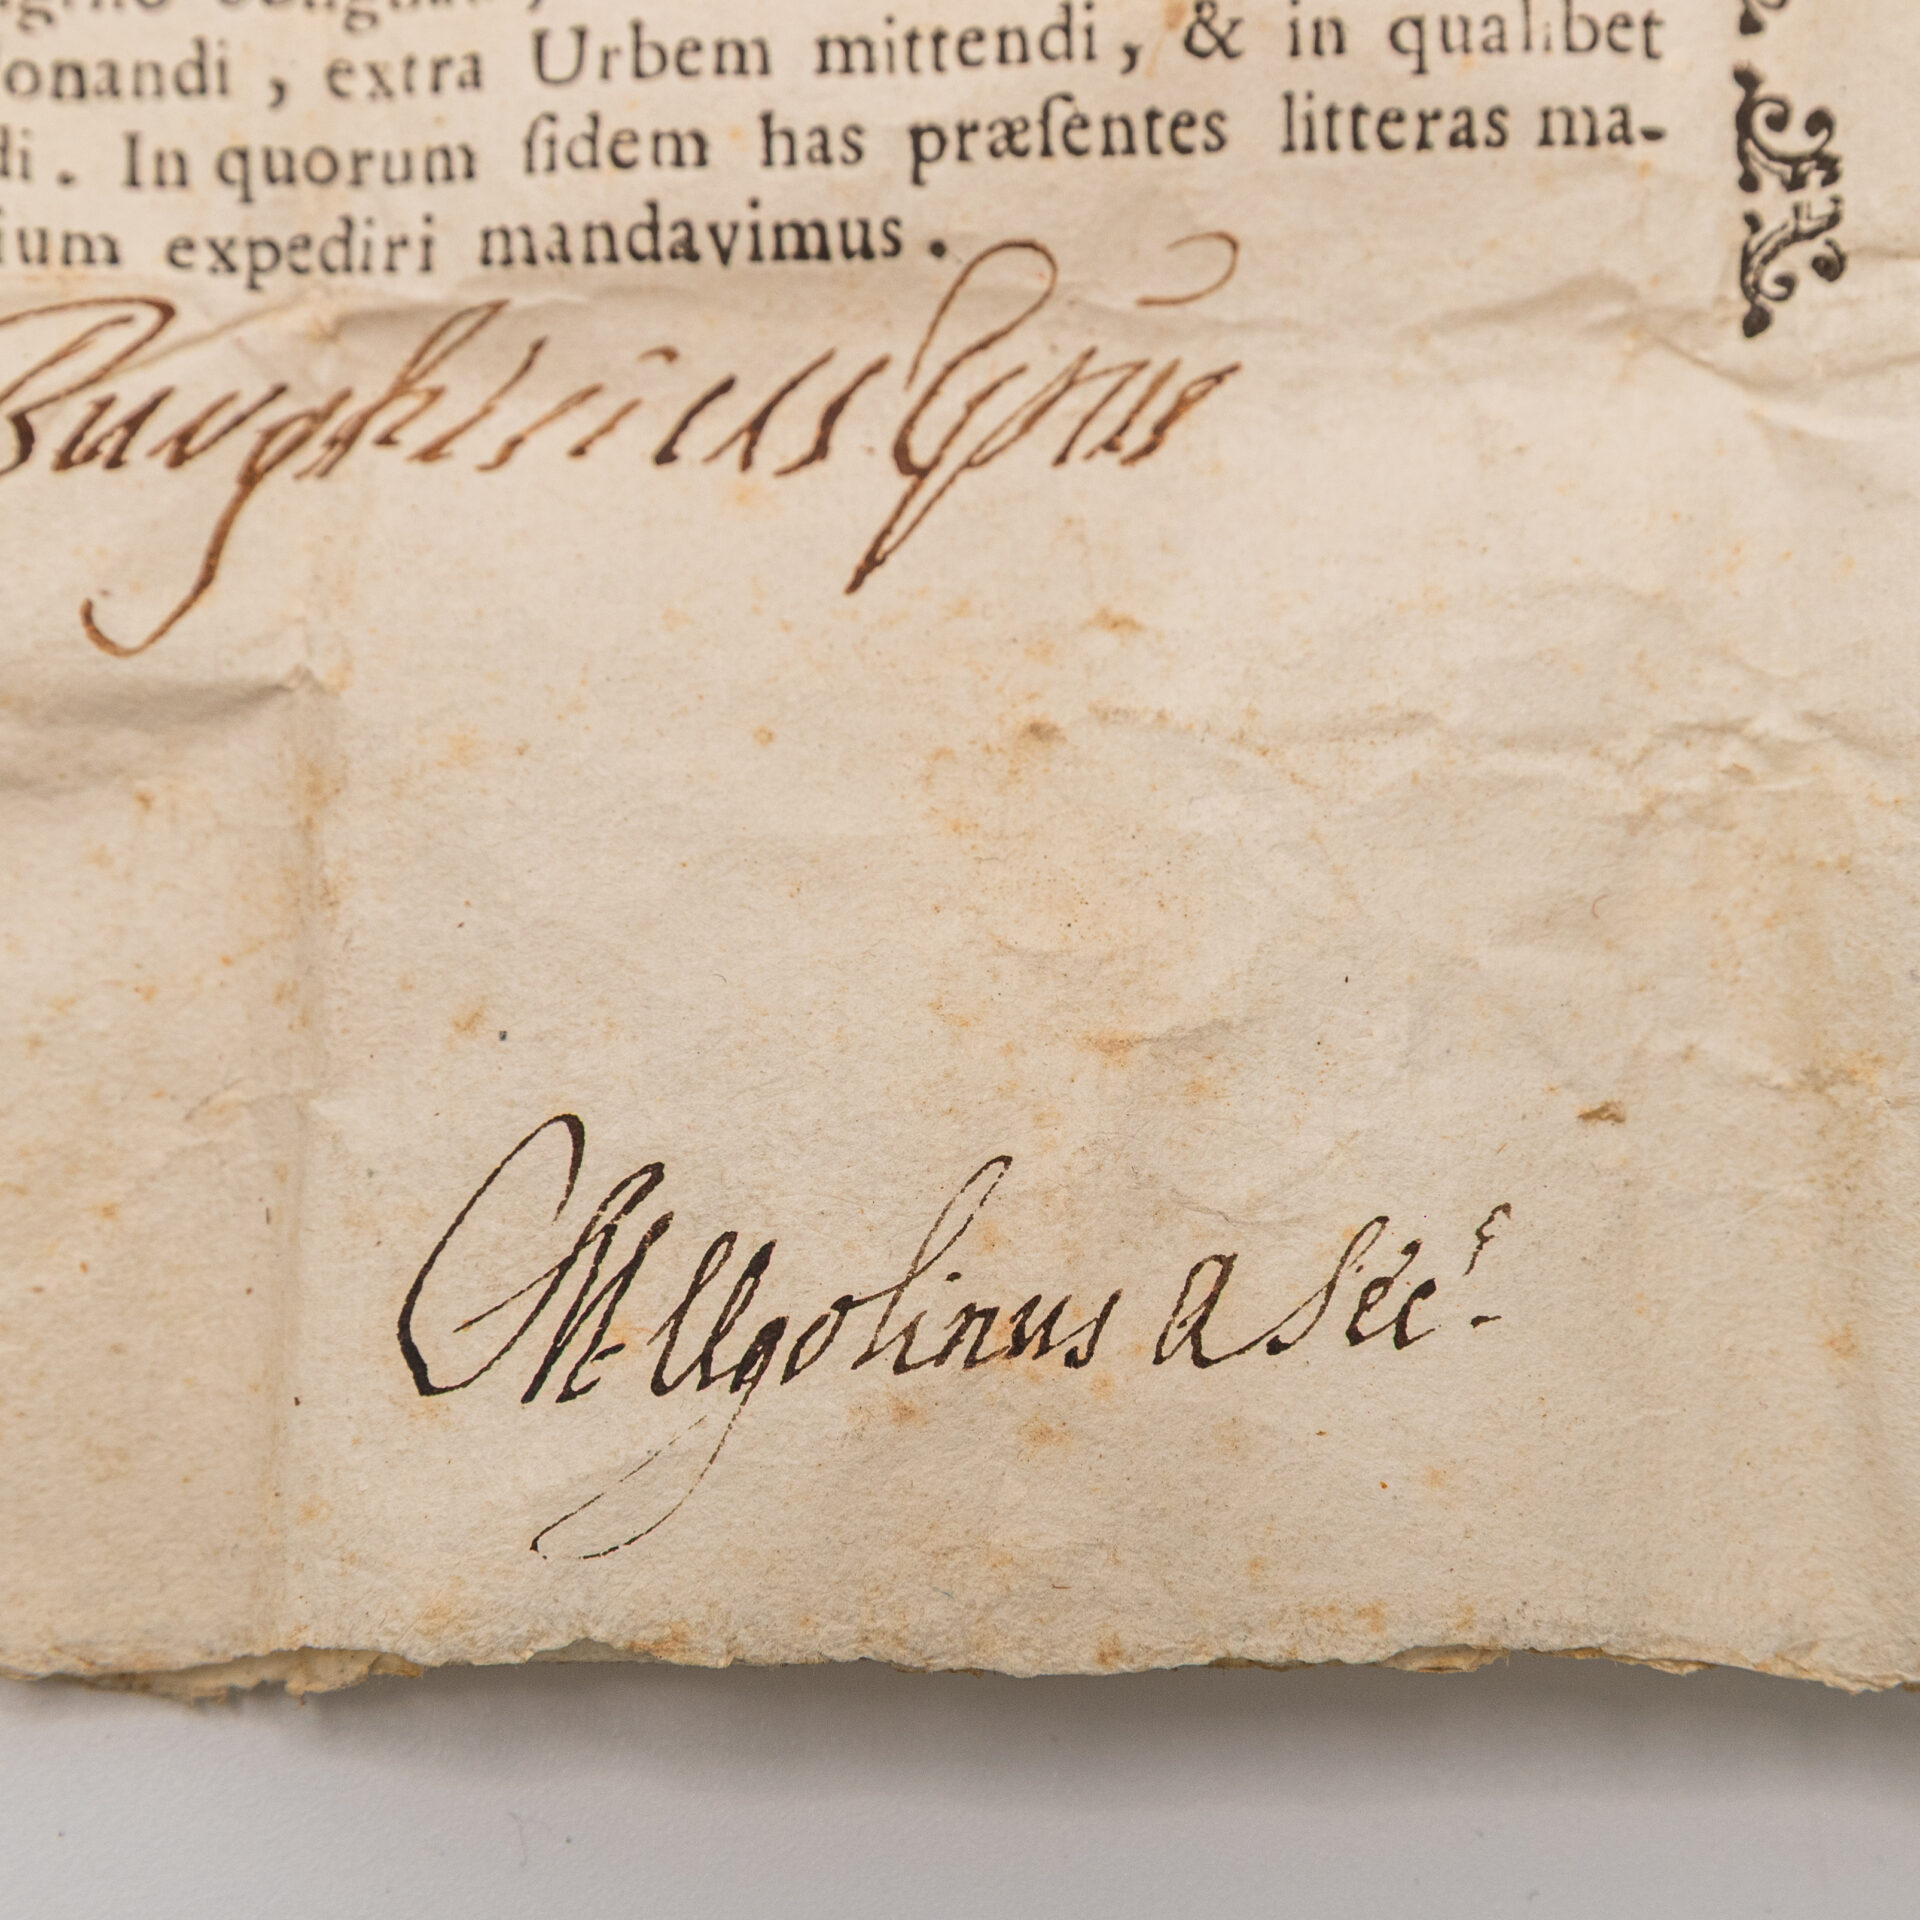 onandi, extra Urbem mittendi, & in qualibet
di. In quorum fidem has præſentes litteras ma-
ium expediri mandavimus.
Burghesius Epũs
M Ugolinus a Sec.s